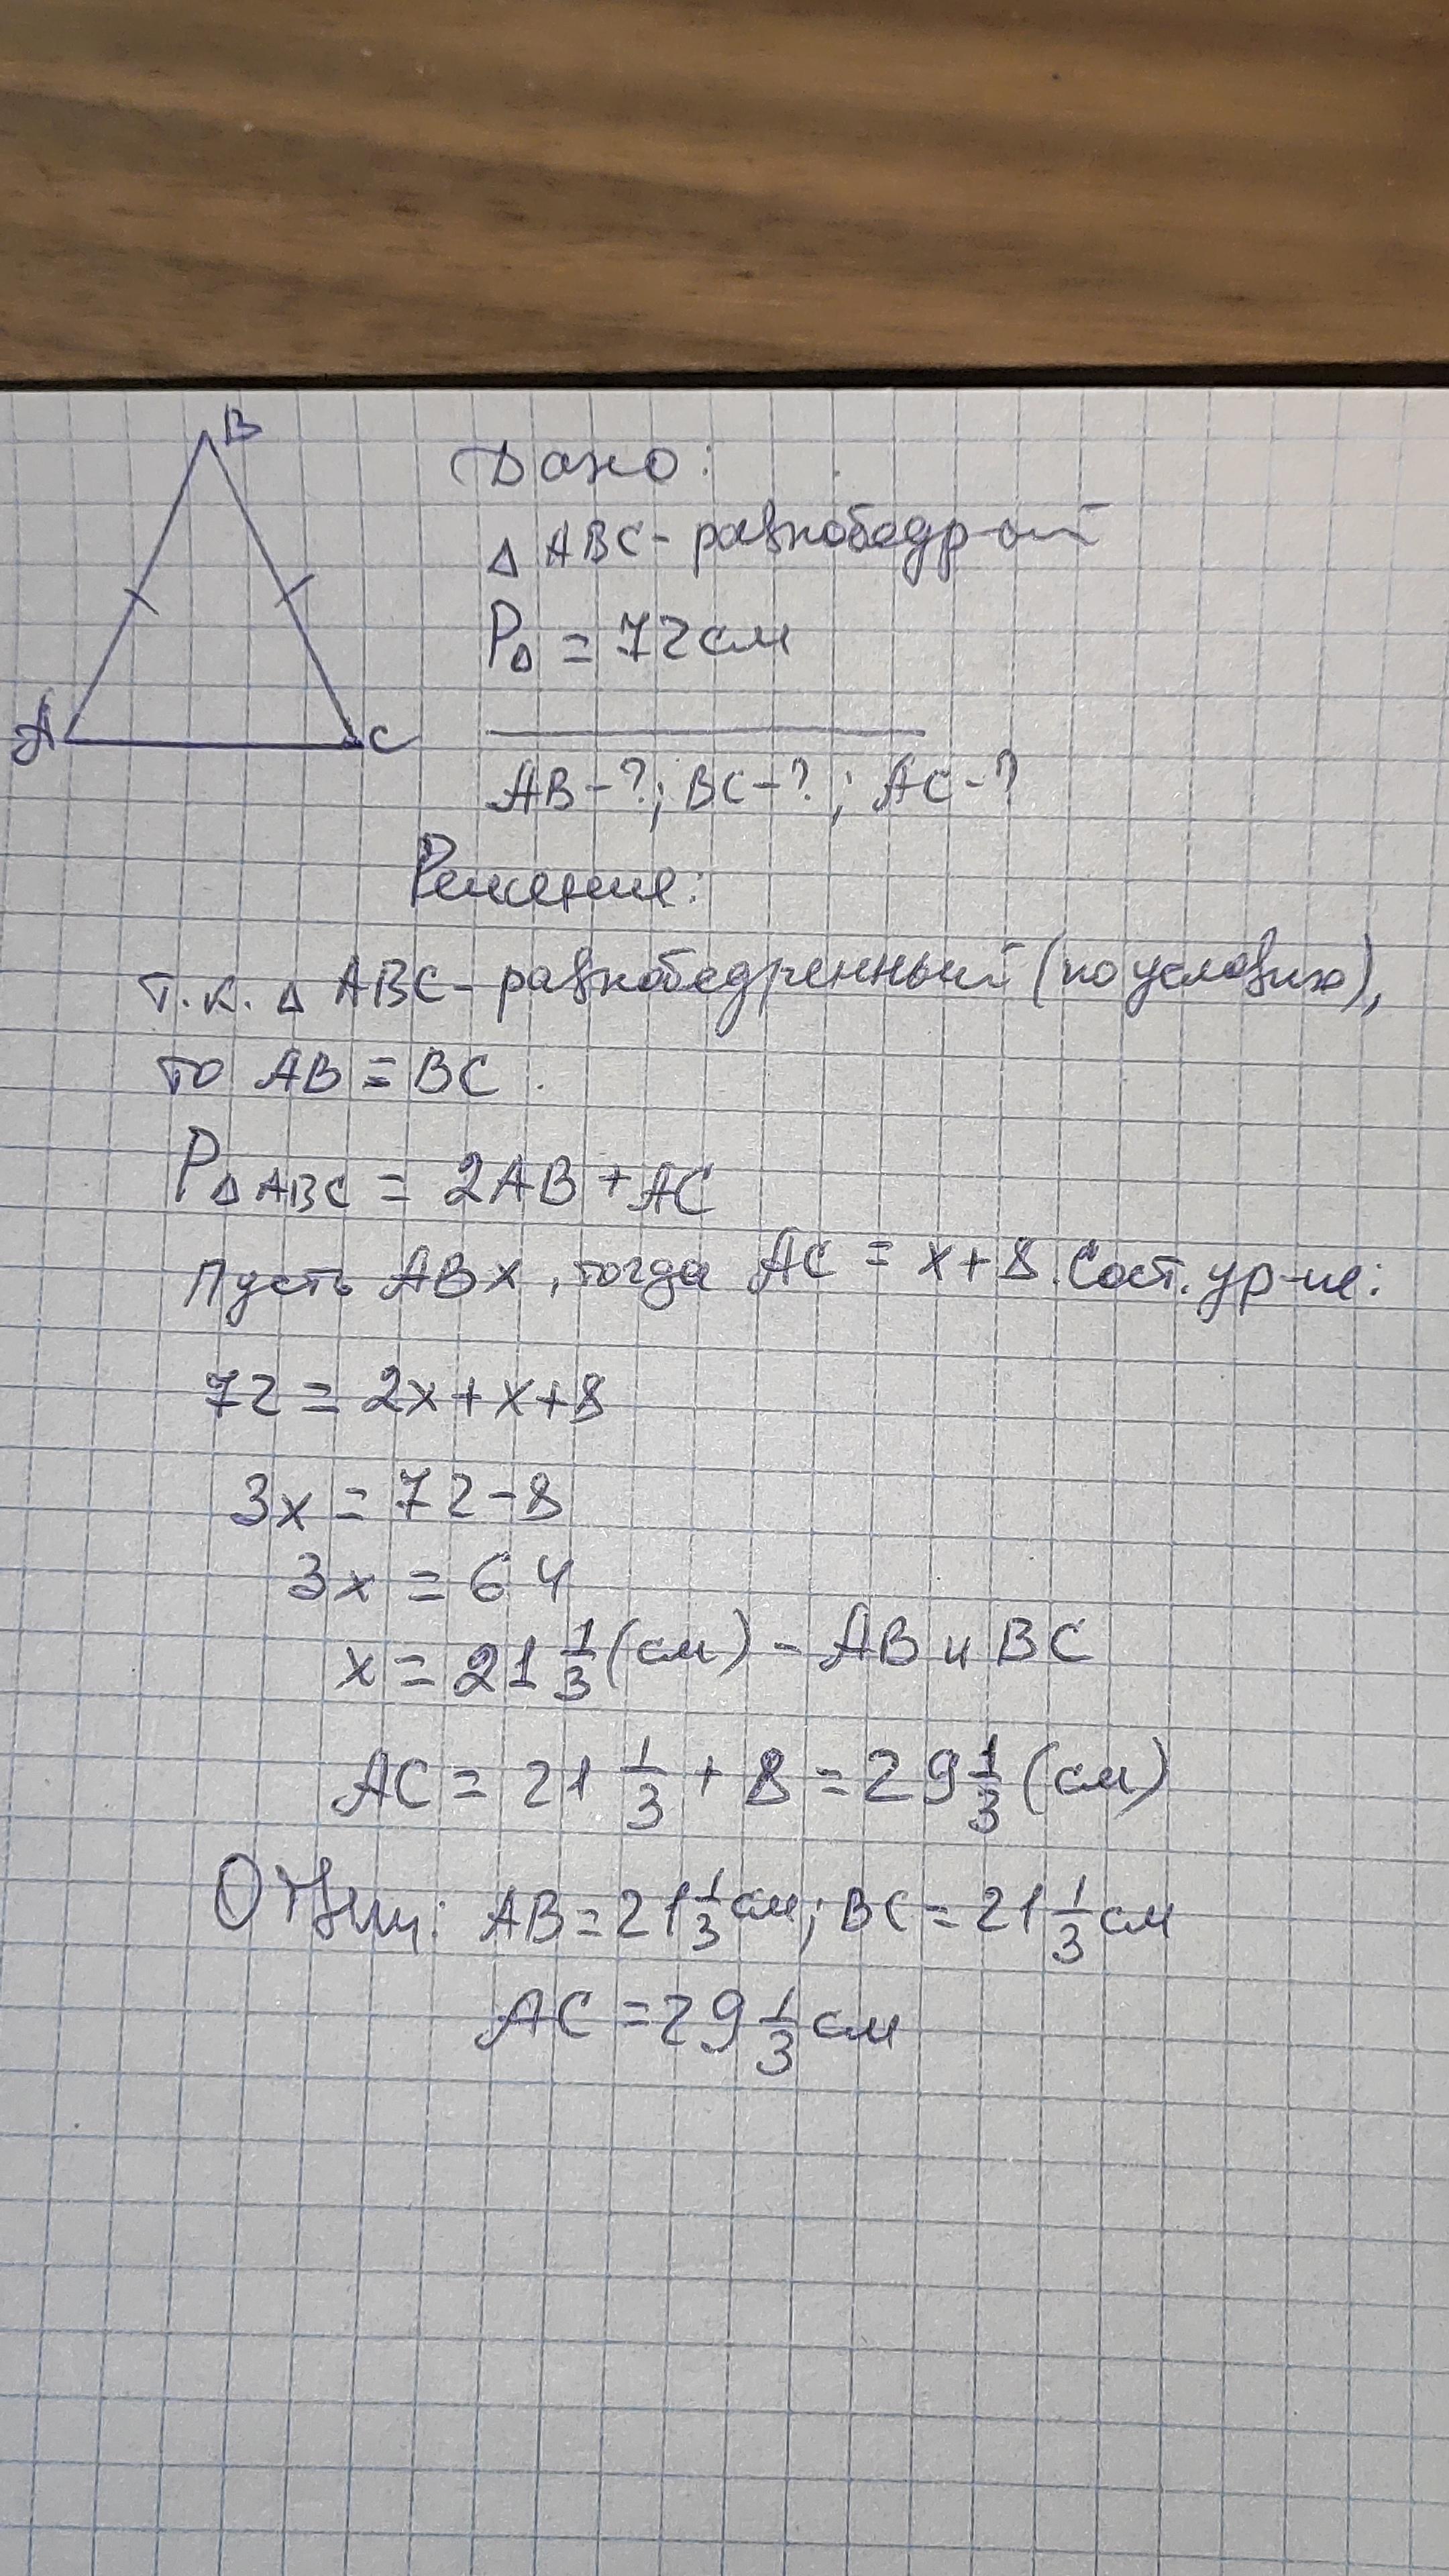 B
Дано:
△ ABC - равнобедр-ый
P△ = 72 см
A
C
AB - ?; BC - ?; AC - ?
Решение:
т.к. △ ABC - равнобедренный (по условию),
то AB = BC.
P△ABC = 2AB + AC
Пусть AB x, тогда AC = x + 8. Сост. ур-ие:
72 = 2x + x + 8
3x = 72 - 8
3x = 64
x = 21 1/3 (см) - AB и BC
AC = 21 1/3 + 8 = 29 1/3 (см)
Ответ: AB = 21 1/3 см; BC = 21 1/3 см
AC = 29 1/3 см